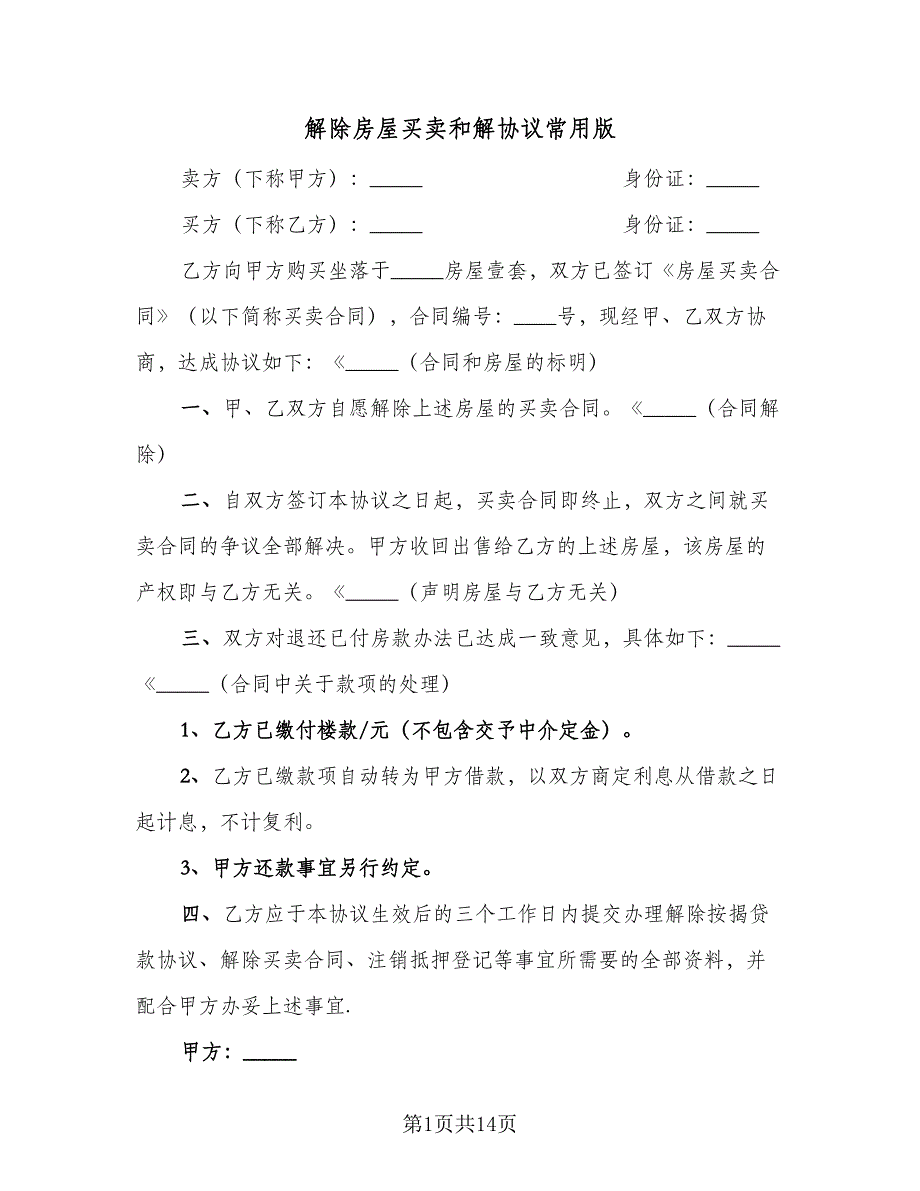 解除房屋买卖和解协议常用版
卖方（下称甲方）：_____ 身份证：_____
买方（下称乙方）：_____ 身份证：_____
乙方向甲方购买坐落于_____房屋壹套，双方已签订《房屋买卖合
同》（以下简称买卖合同），合同编号：____号，现经甲、乙双方协
商，达成协议如下：《_____（合同和房屋的标明）
一、甲、乙双方自愿解除上述房屋的买卖合同。《_____（合同解
除）
二、自双方签订本协议之日起，买卖合同即终止，双方之间就买
卖合同的争议全部解决。甲方收回出售给乙方的上述房屋，该房屋的
产权即与乙方无关。《_____（声明房屋与乙方无关）
三、双方对退还已付房款办法已达成一致意见，具体如下：_____
《_____（合同中关于款项的处理）
1、乙方已缴付楼款/元（不包含交予中介定金）。
2、乙方已缴款项自动转为甲方借款，以双方商定利息从借款之日
起计息，不计复利。
3、甲方还款事宜另行约定。
四、乙方应于本协议生效后的三个工作日内提交办理解除按揭贷
款协议、解除买卖合同、注销抵押登记等事宜所需要的全部资料，并
配合甲方办妥上述事宜.
甲方：_____
第1页共14页